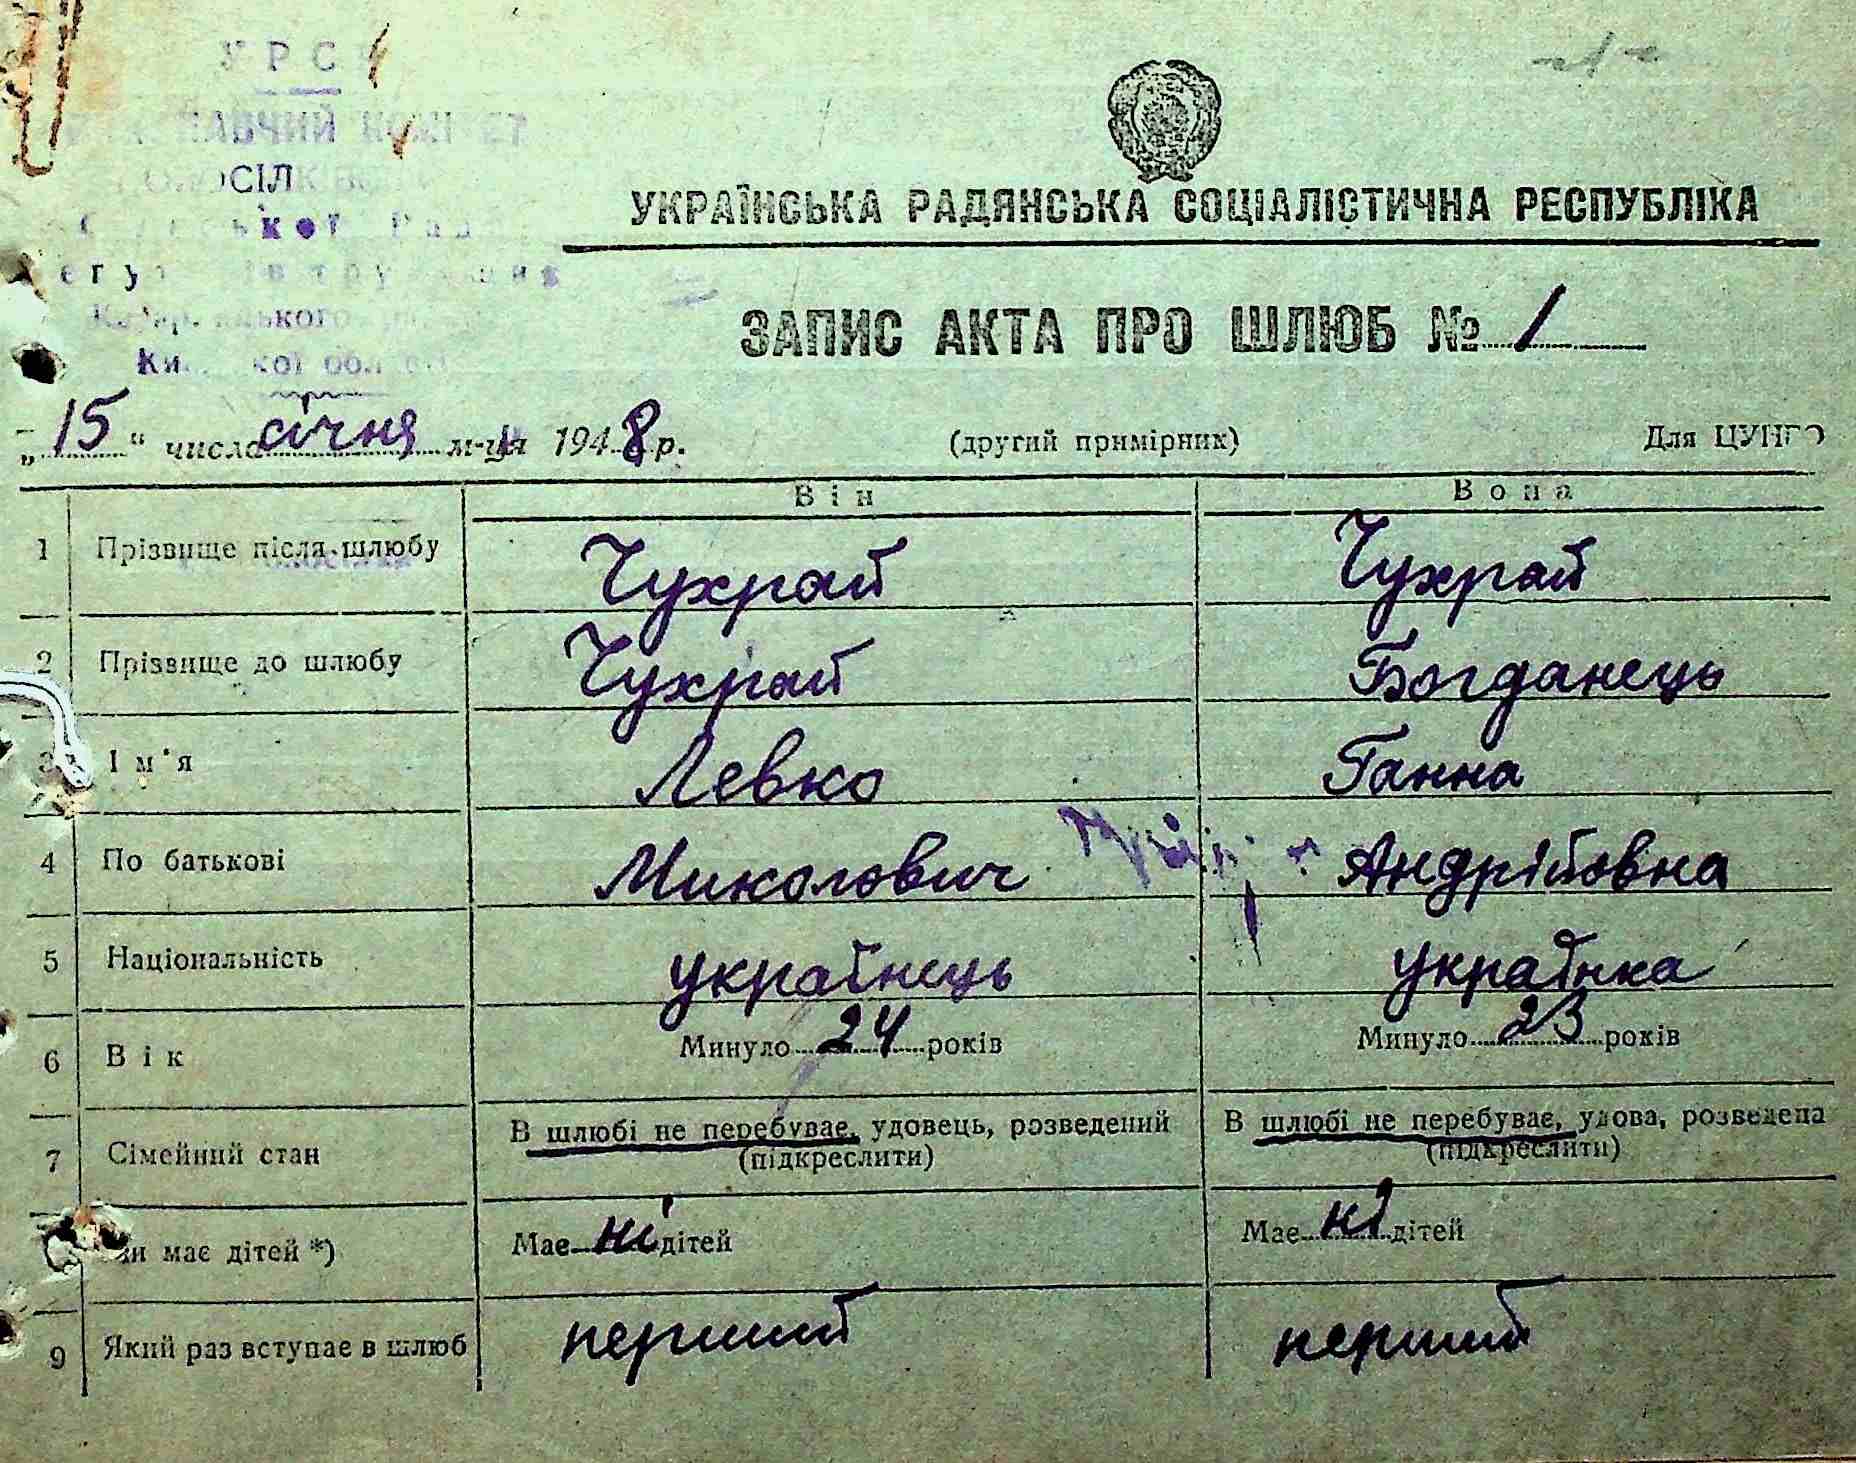 УРС
СІЛ
УКРАЇНСЬКА РАДЯНСЬКА СОЦІАЛІСТИЧНА РЕСПУБЛІКА
ЗАПИС АКТА ПРО ШЛЮБ № 1
„15“ число січня м-ця 1948 р. (другий примірник) Для ЦУНГО
Він Вона
1 Прізвище після шлюбу Чухрай Чухрай
2 Прізвище до шлюбу Чухрай Богданець
3 Ім'я Левко Ганна
4 По батькові Миколович Андріївна
5 Національність українець українка
6 Вік Минуло 24 років Минуло 23 років
7 Сімейний стан В шлюбі не перебуває, удовець, розведений В шлюбі не перебуває, удова, розведена
(підкреслити) (підкреслити)
чи має дітей *) Має ні дітей Має ні дітей
9 Який раз вступає в шлюб перший перший